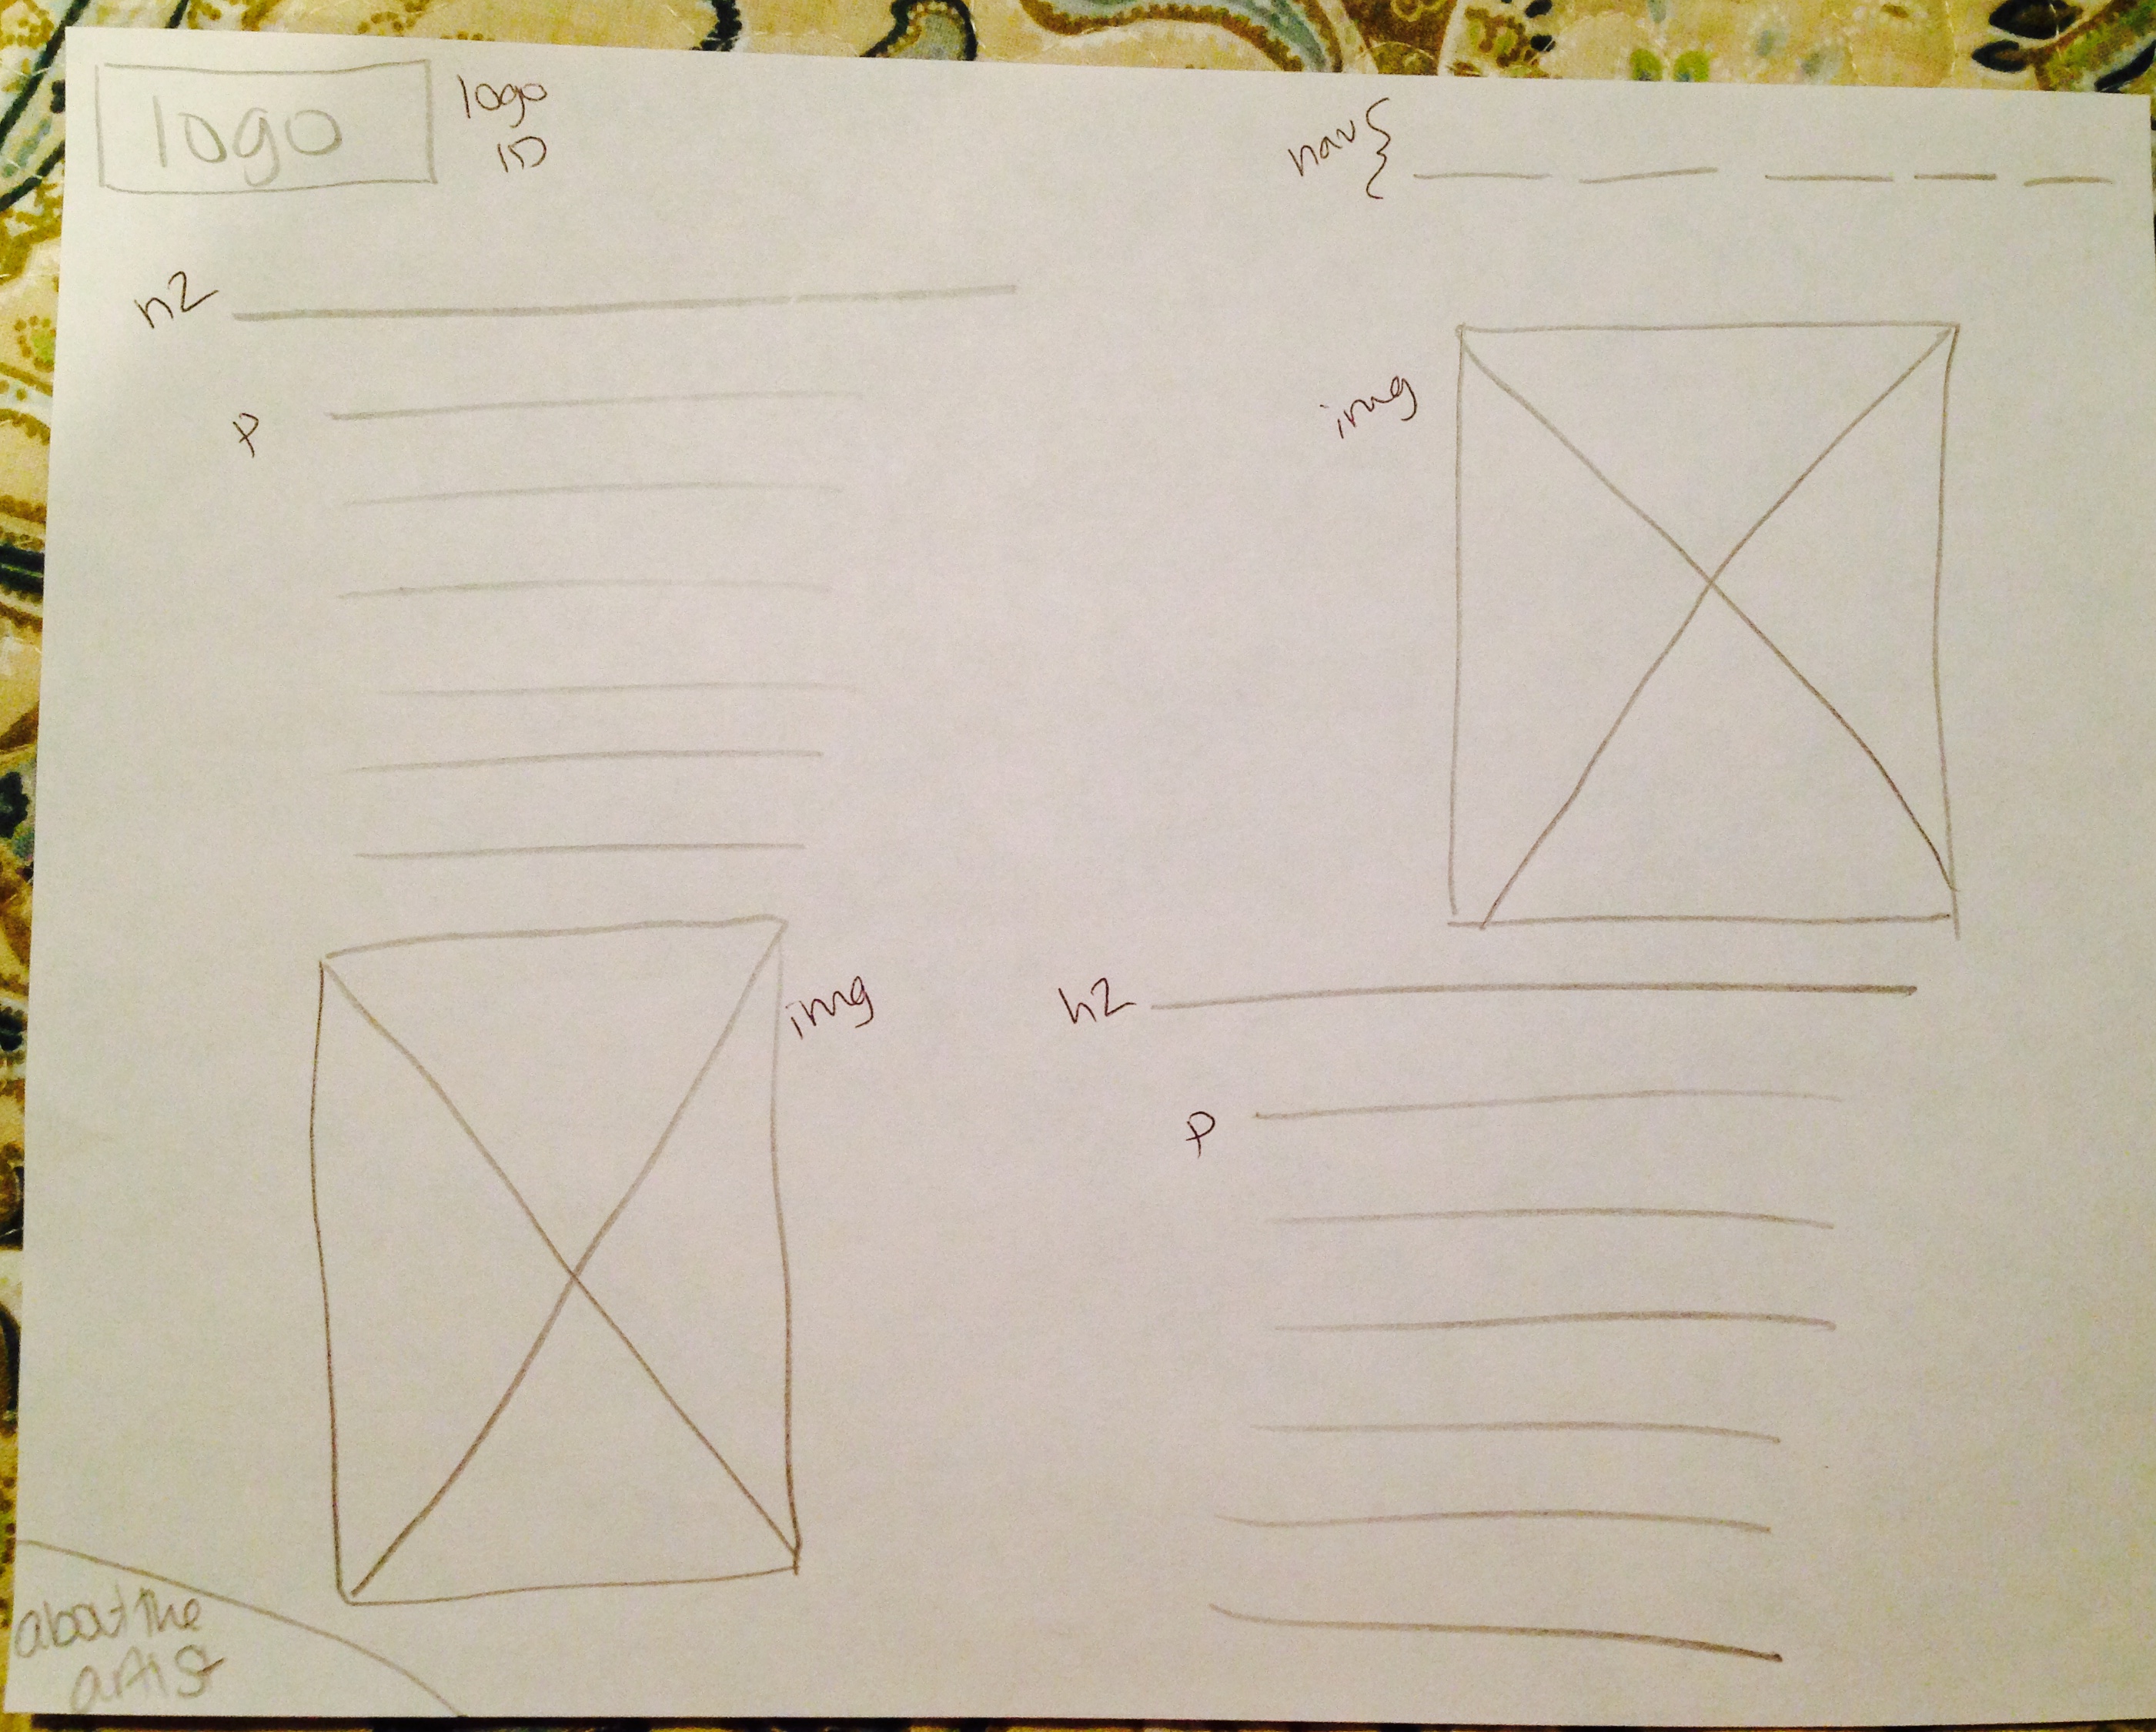 logo
logo
ID
nav
h2
p
img
img
h2
p
about the
artist